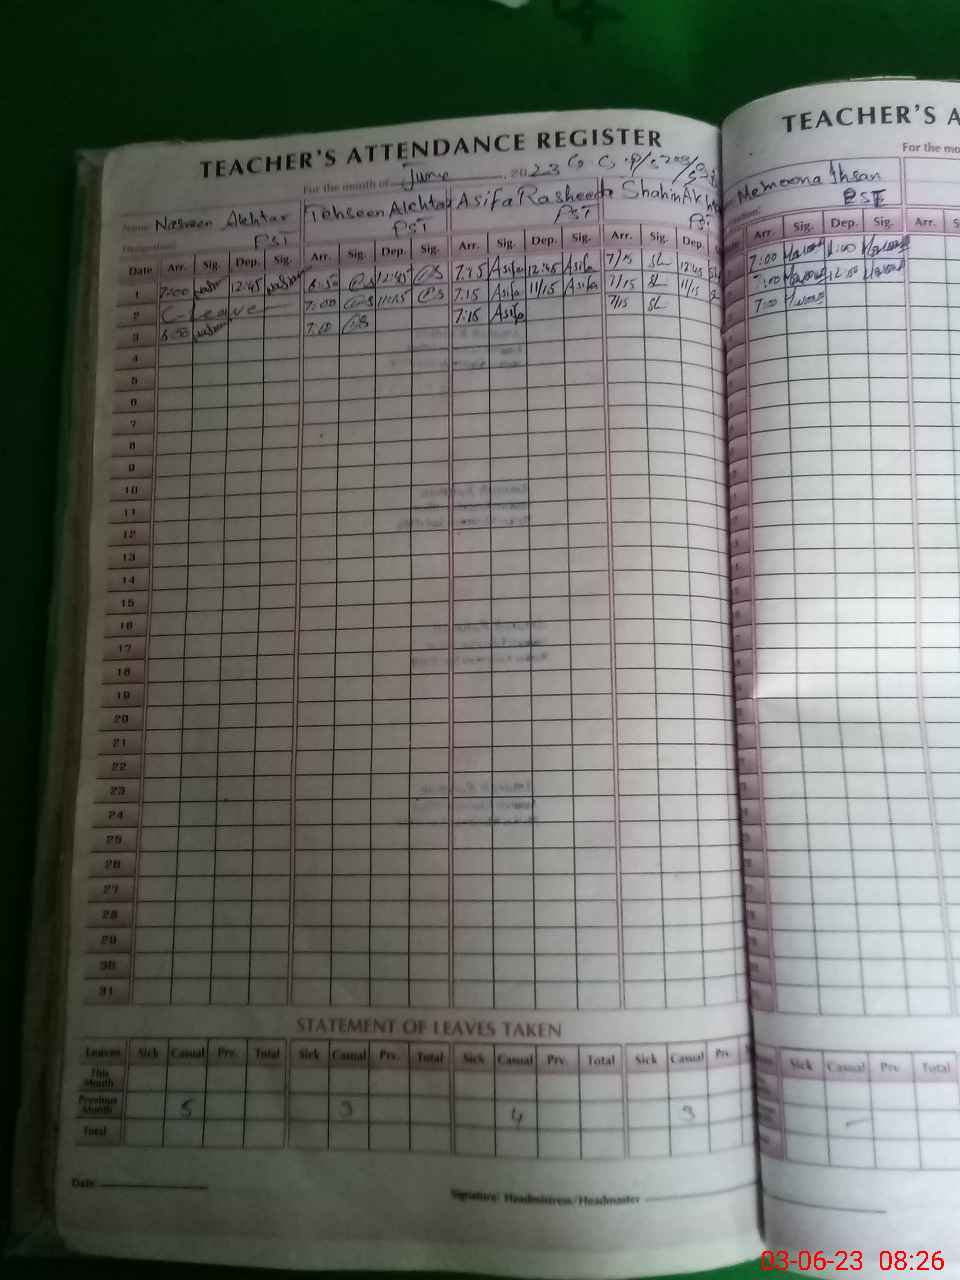 TEACHER'S ATTENDANCE REGISTER
For the month of June 2023
Name Nasreen Akhtar Tehseen Akhtar Asifa Rasheed Shahin Akhtar
PST PST PST PST
Date Arr. Sig. Dep. Sig. Arr. Sig. Dep. Sig. Arr. Sig. Dep. Sig. Arr. Sig. Dep.
1 7:00 12:45 6:50 12:45 7:15 Asifa 12:45 Asifa 7/15 SL 12:45
2 C-Leave 7:00 11:15 7:15 Asifa 11/15 Asifa 7/15 SL 11/15
3 6:50 7:10 7:15 Asifa 7/15 SL
4
5
6
7
8
9
10
11
12
13
14
15
16
17
18
19
20
21
22
23
24
25
26
27
28
29
30
31
STATEMENT OF LEAVES TAKEN
Leaves Sick Casual Prv. Total Sick Casual Prv. Total Sick Casual Prv. Total Sick Casual Prv.
This Month
Previous Month 5 3 4 3
Total
Date
Signature: Headmistress/Headmaster
TEACHER'S A
For the mo
Memoona Ihsan
PST
Arr. Sig. Dep. Sig. Arr.
7:00 1:00
7:00 12:00
7:00
Sick Casual Prv Total
03-06-23 08:26